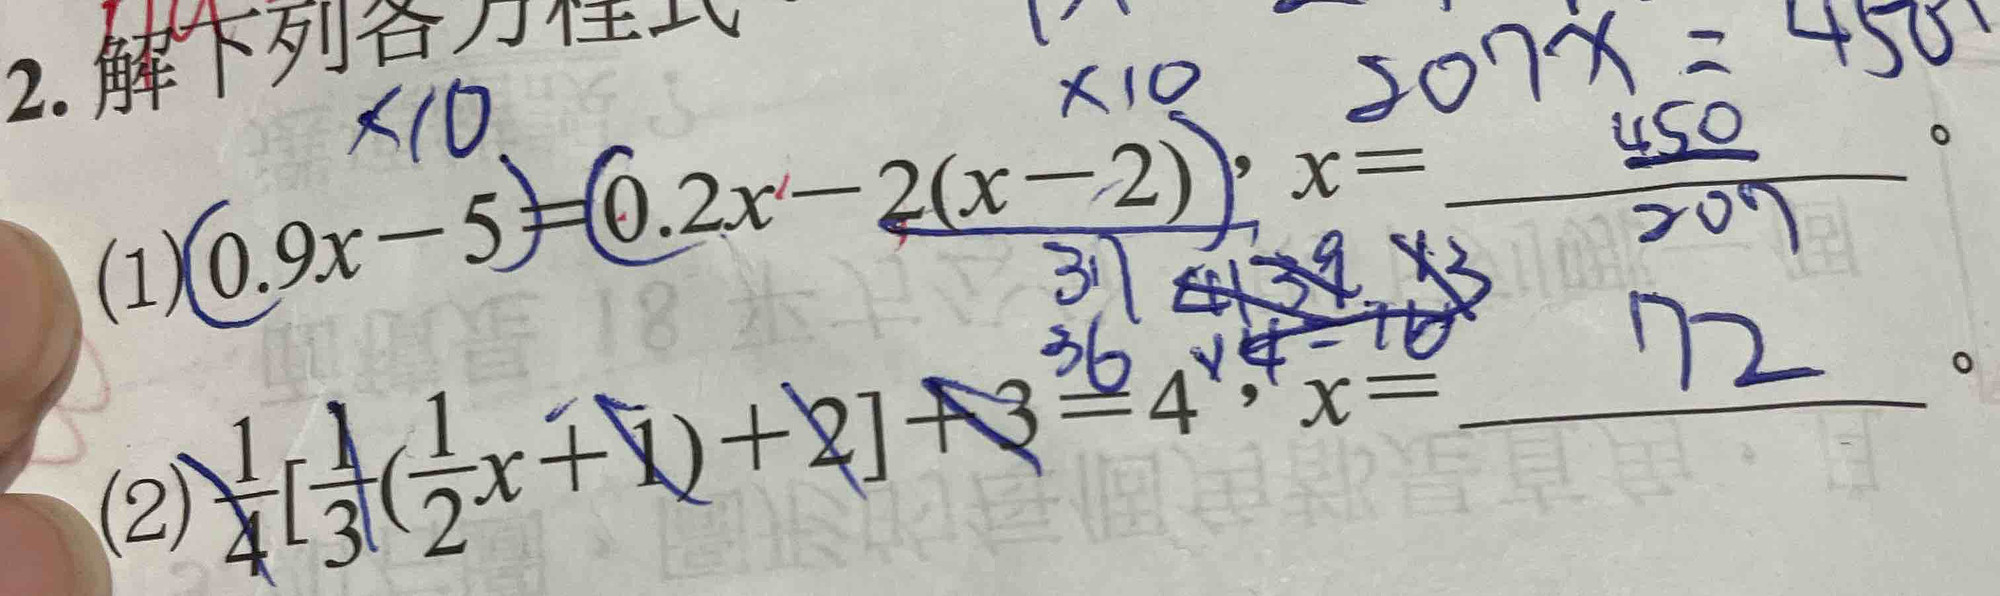 2. 解下列各方程式
×10
×10
207x = 450
(1) 0.9x－5＝0.2x－2(x－2)，x＝ 450/207 。
37
36
(2) 1/4[1/3(1/2x＋1)＋2]＋3＝4，x＝ 72 。